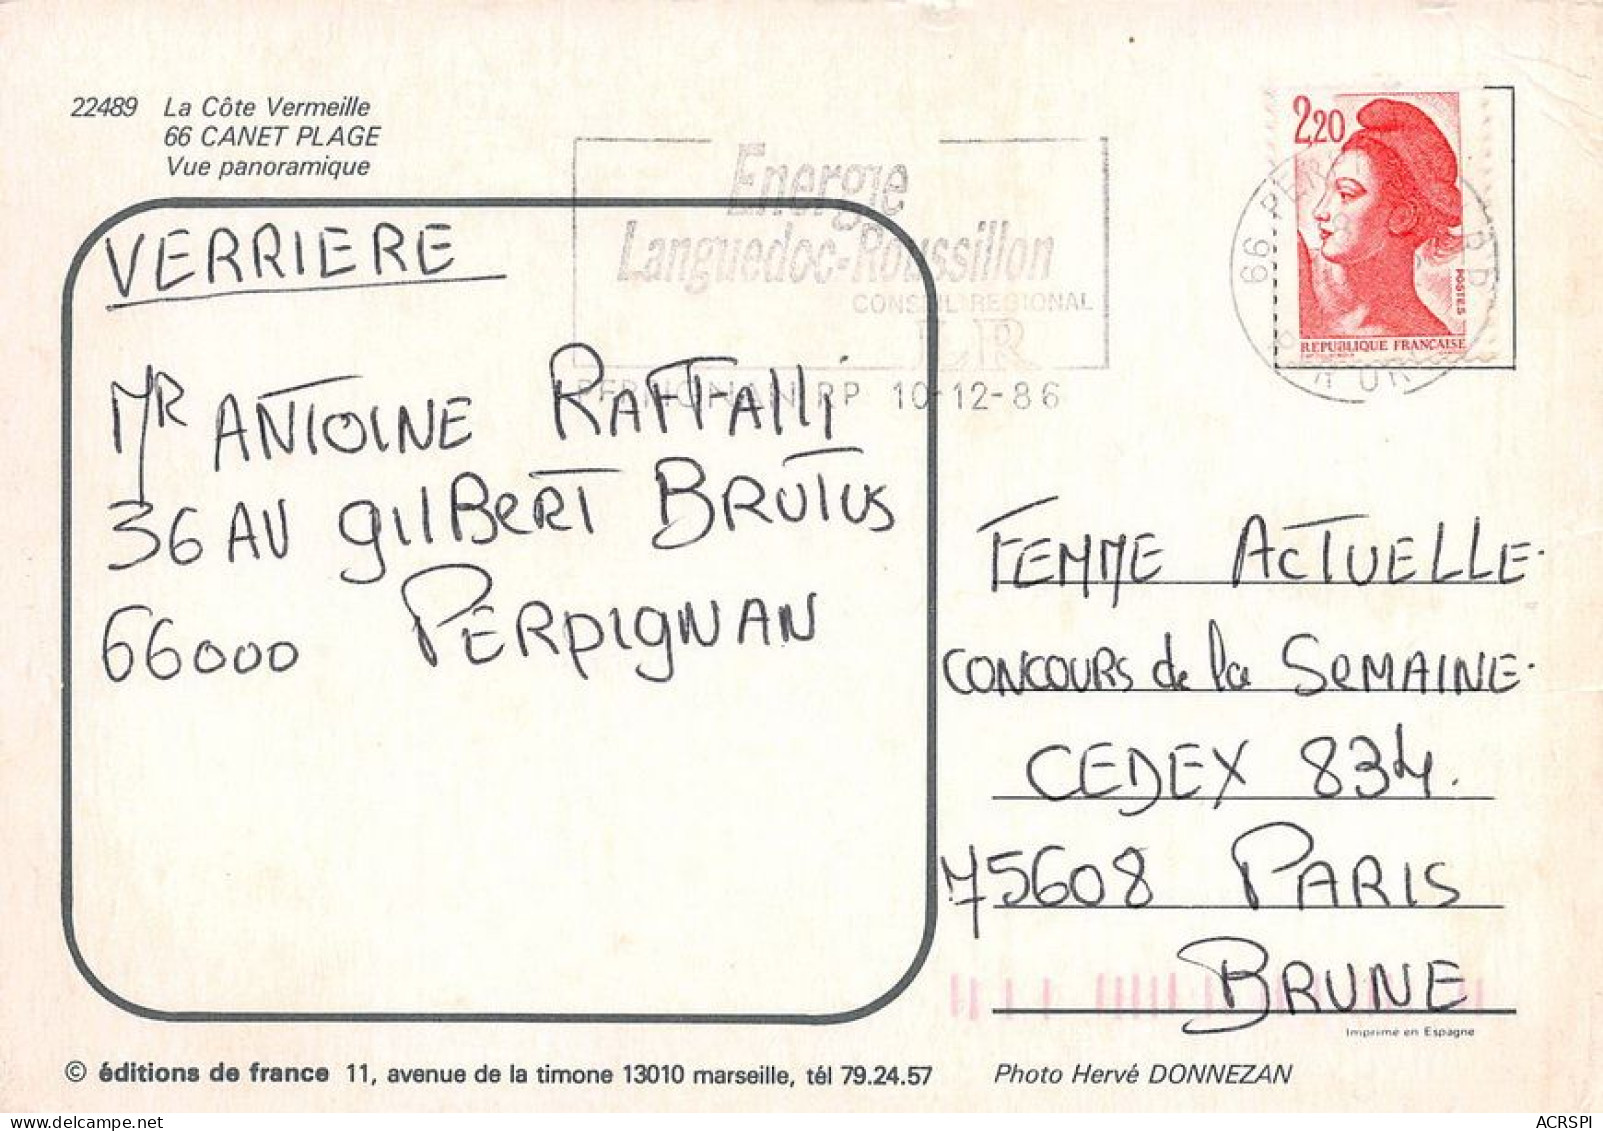 22489 La Côte Vermeille
66 CANET PLAGE
Vue panoramique
Energie
Languedoc-Roussillon
CONSEIL REGIONAL
LR
PERPIGNAN RP 10-12-86
2,20
POSTES
REPUBLIQUE FRANÇAISE
VERRIERE
MR ANTOINE RAFFALLi
36 AV gilBeRT BRUTUS
66000 PERPIGNAN
FEMME ACTUELLE.
CONCOURS de la SeMAINE.
CEDEX 834.
75608 PARIS
BRUNE
Imprimé en Espagne
© éditions de france 11, avenue de la timone 13010 marseille, tél 79.24.57
Photo Hervé DONNEZAN
ACRSPI